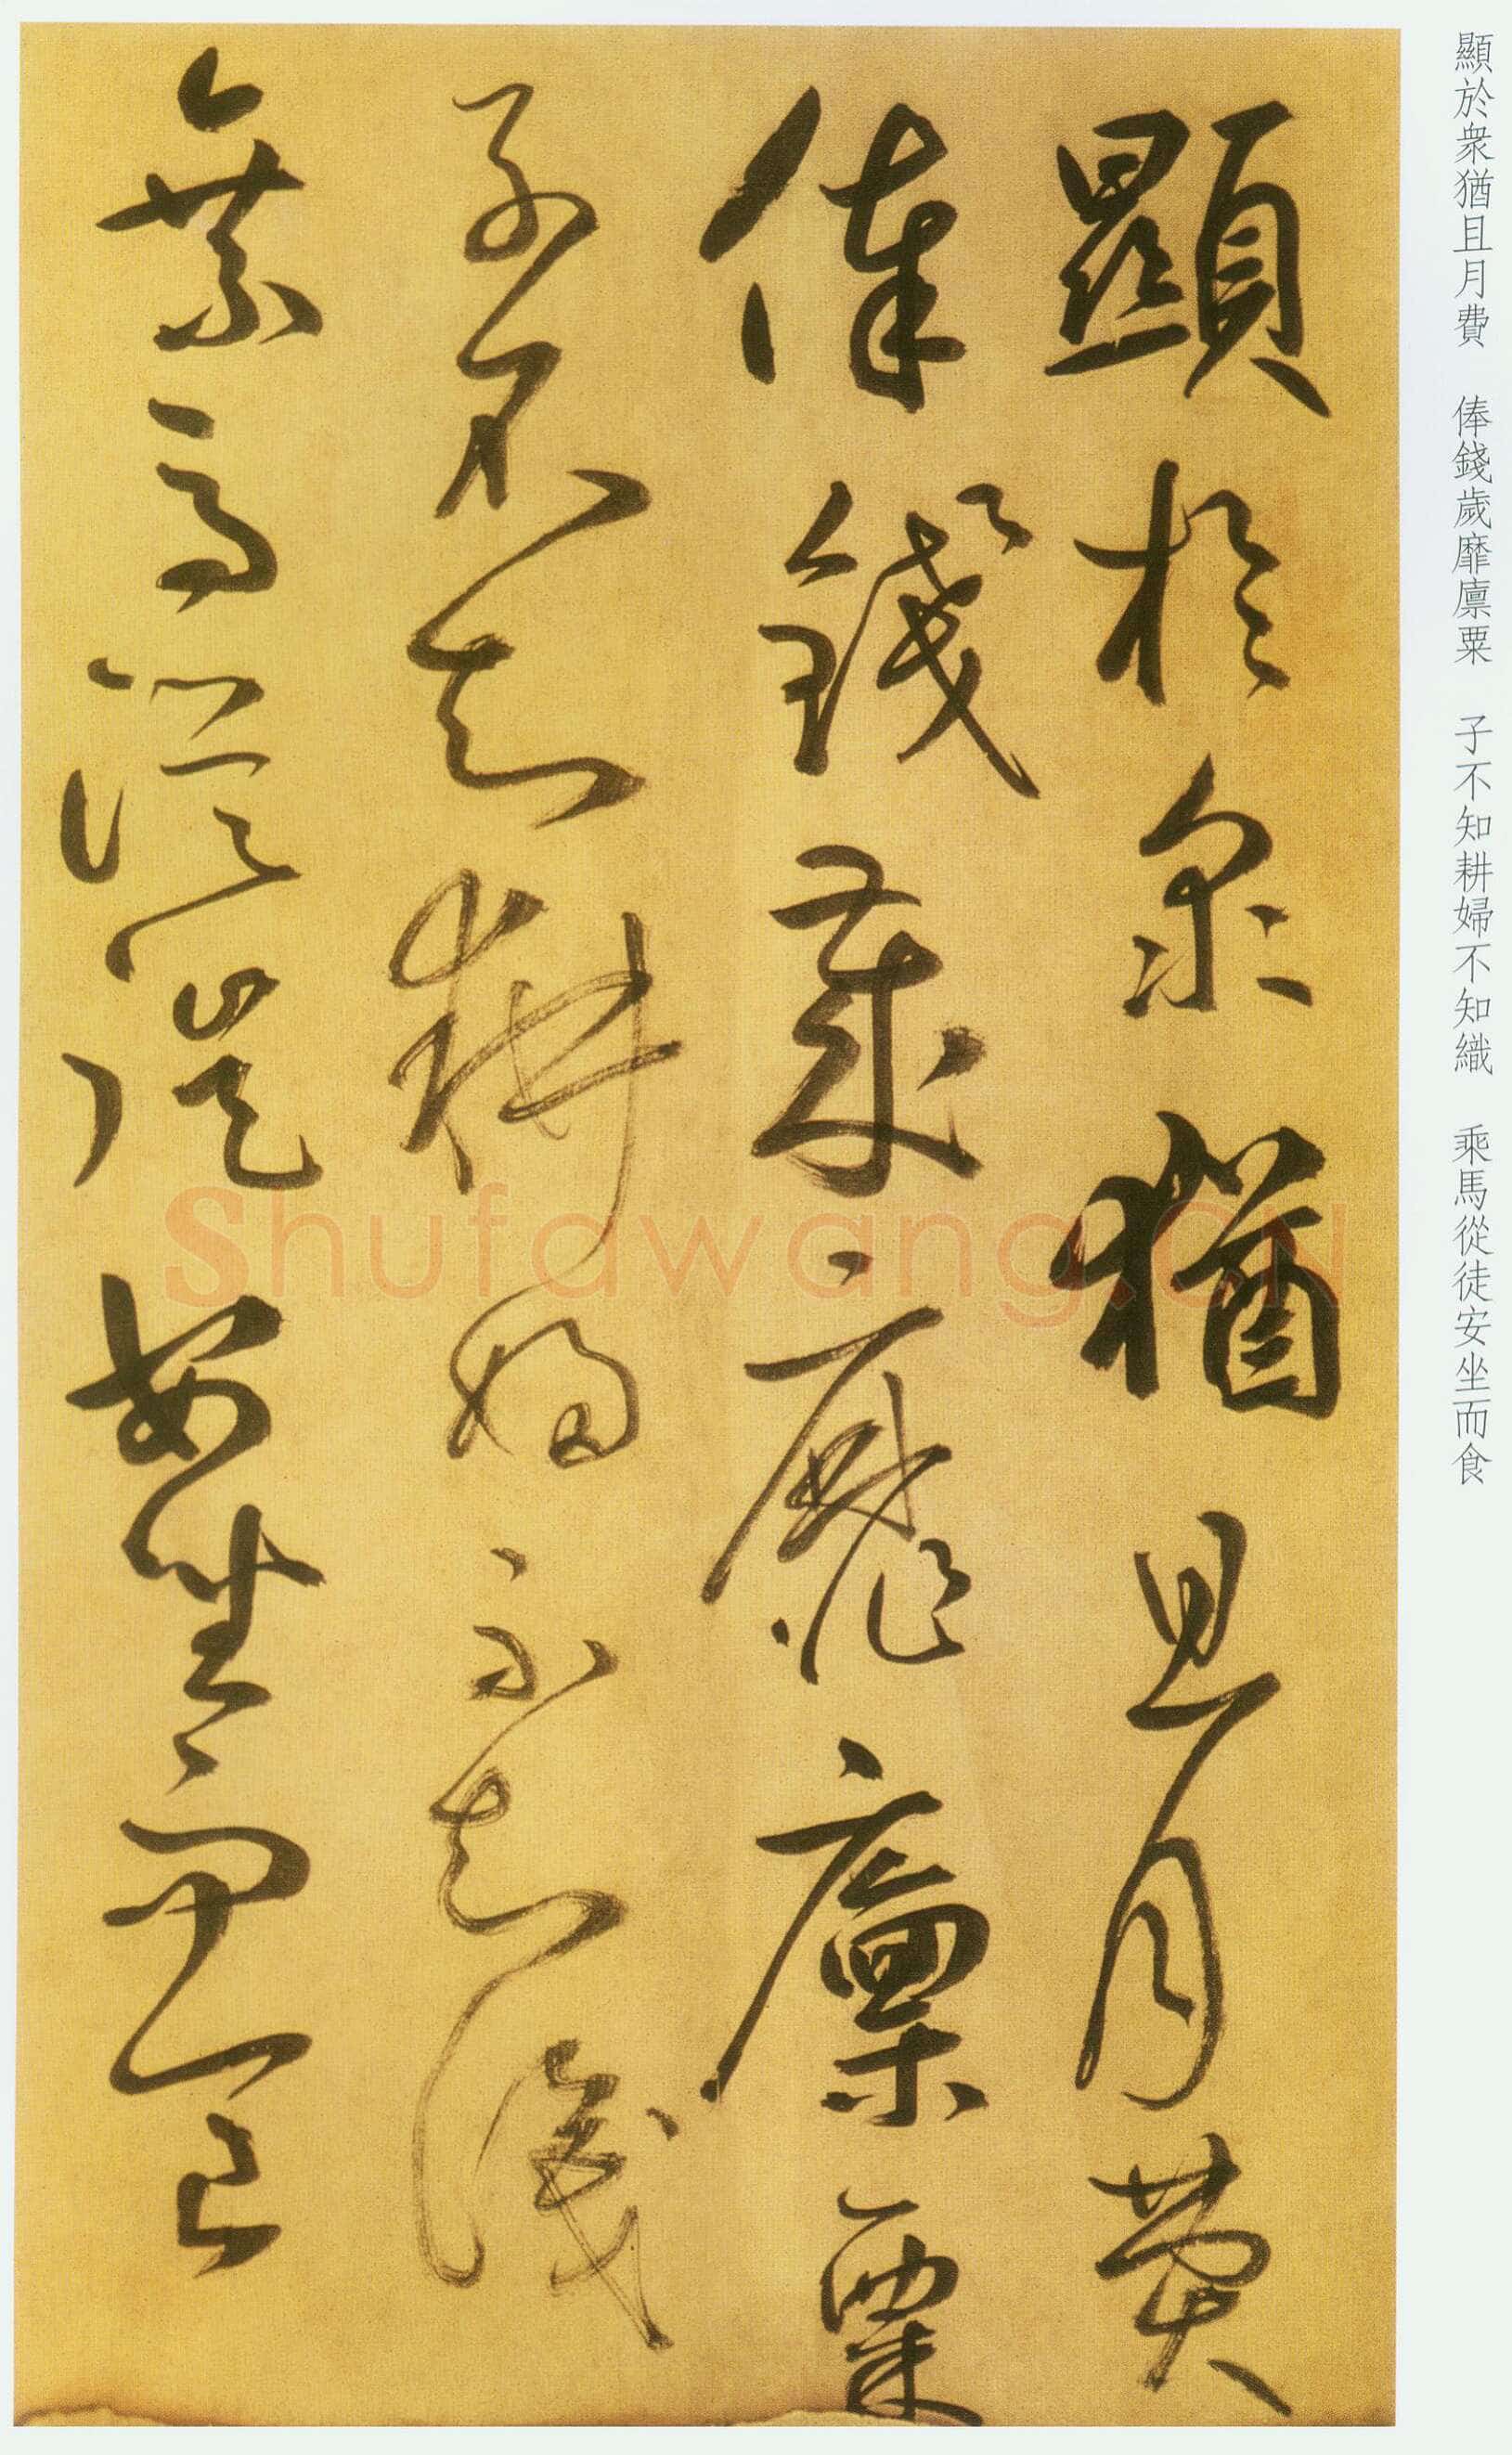 顯於衆猶且月費　俸錢歲靡廪粟　子不知耕婦不知織　乘馬從徒安坐而食
顯於衆猶且月費
俸錢歲靡廪粟
子不知耕婦不知織
乘馬從徒安坐而食
shufawang.cn